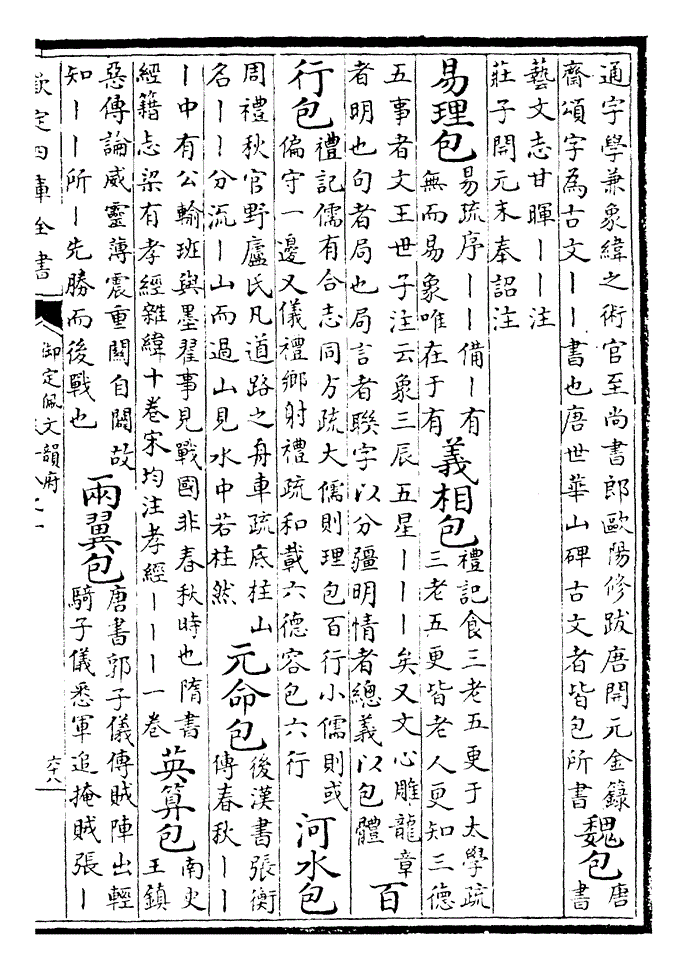 通字學兼象緯之術官至尚書郎歐陽修跋唐開元金籙
齋頌字為古文丨丨書也唐世華山碑古文者皆包所書
魏包
唐
書
藝文志甘暉丨丨注
莊子開元末奉詔注
易理包
易疏序丨丨備丨有
無而易象唯在于有
義相包
禮記食三老五更于太學疏
三老五更皆老人更知三德
五事者文王世子注云象三辰五星丨丨丨矣又文心雕龍章
者明也句者局也局言者聯字以分疆明情者總義以包體
百
行包
禮記儒有合志同方疏大儒則理包百行小儒則或
偏守一邊又儀禮鄉射禮疏和載六德容包六行
河水包
周禮秋官野廬氏凡道路之舟車疏底柱山
名丨丨分流丨山而過山見水中若柱然
元命包
後漢書張衡
傳春秋丨丨
丨中有公輸班與墨翟事見戰國非春秋時也隋書
經籍志梁有孝經雜緯十卷宋均注孝經丨丨丨一卷
英算包
南史
王鎮
惡傳論威靈薄震重關自闢故
知丨丨所丨先勝而後戰也
兩翼包
唐書郭子儀傳賊陣出輕
騎子儀悉軍追掩賊張丨
欽定四庫全書
御定佩文韻府
六十八